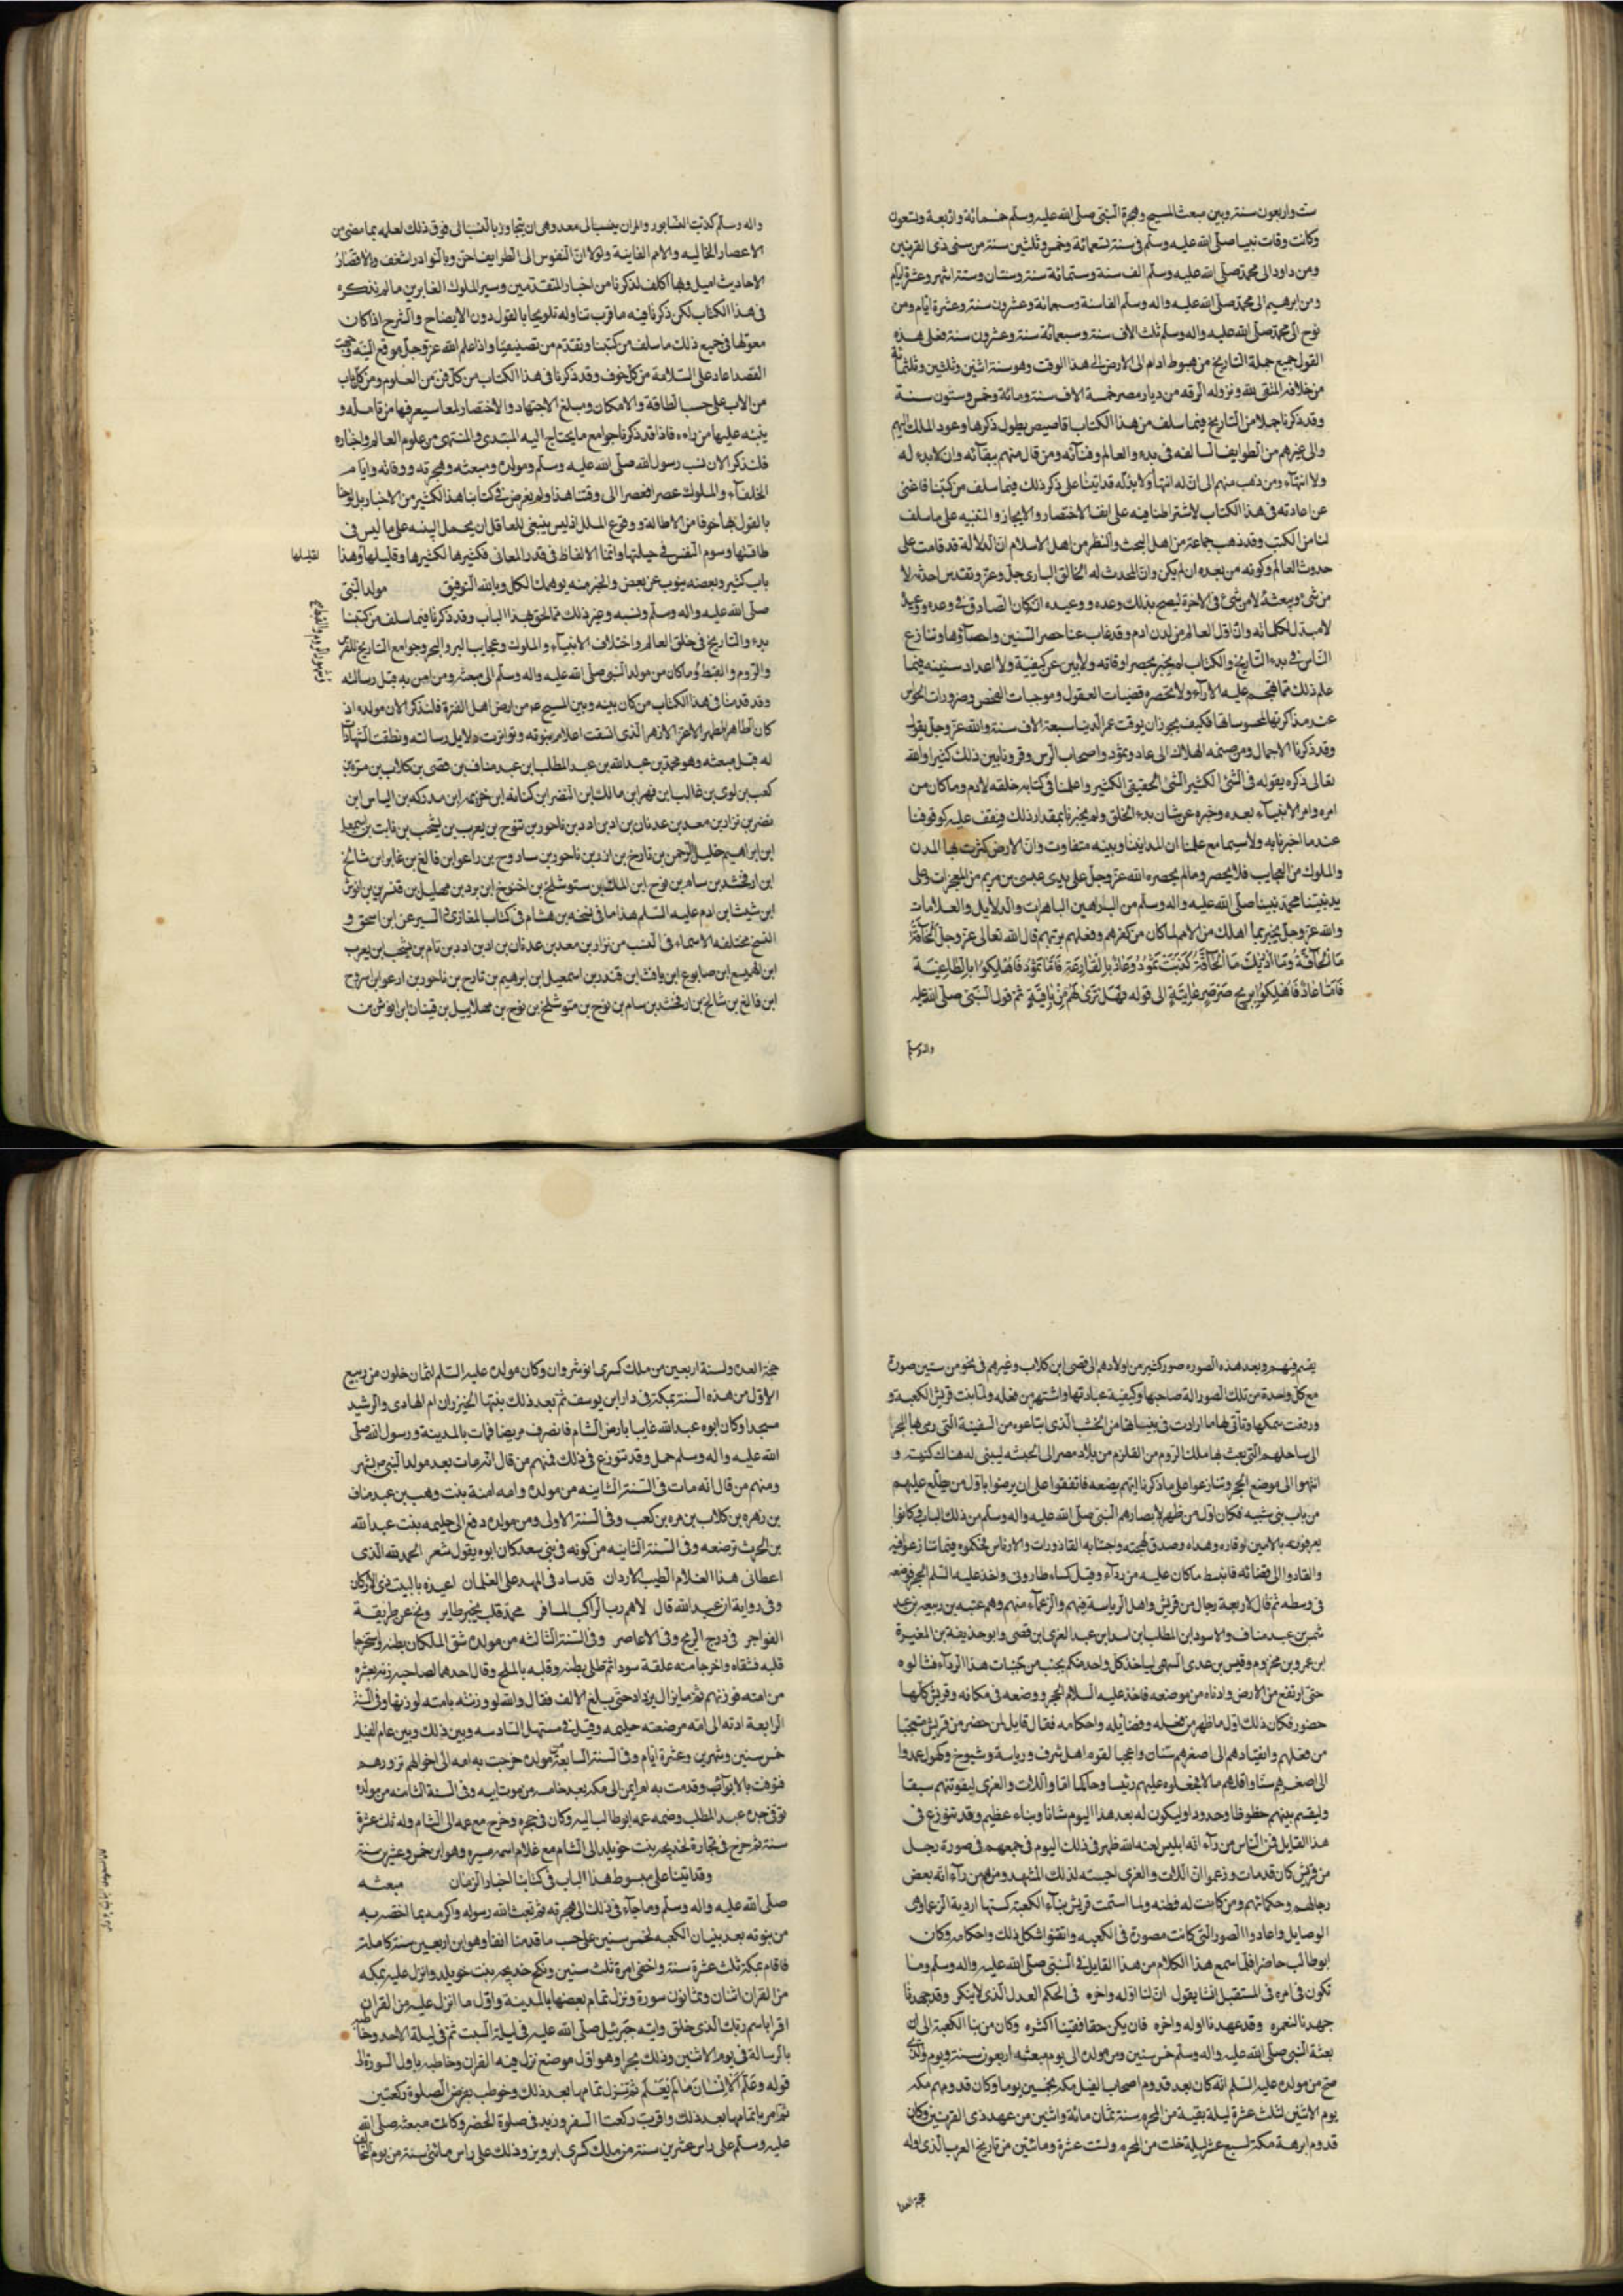 ست واربعون سنة وبين مبعث المسيح وهجرة النبي صلى الله عليه وسلم خمسمائة واربعة وتسعون
وكانت وفات نبينا صلى الله عليه وسلم في سنة تسعمائة وخمس وثلثين سنة من سنى ذى القرنين
ومن داود الى محمد صلى الله عليه وسلم الف سنة وستمائة سنة وسنتان وستة اشهر وعشرة ايام
ومن ابرهيم الى محمد صلى الله عليه واله وسلم الفا سنة وسبعمائة وعشرون سنة وعشرة ايام ومن
نوح الى محمد صلى الله عليه واله وسلم ثلث الاف سنة وسبعمائة سنة وعشرون سنة فعلى هذه
القول جميع جملة التاريخ من هبوط ادام الى الارض الى هذا الوقت وهو سنة اثنين وثلثين وثلثمائة
من خلافة المتقى بالله ونزوله الرقه من ديار مصر خمسة الاف سنة ومائة وخمس وستون سنة
وقد ذكرنا جملا من التاريخ فيما سلف من هذا الكتاب اقاصيص يطول ذكرها وعود الملك اليهم
والى غيرهم من الطوايف السالفه فى بدء والعالم وفنآئه ومن قال منهم ببقآئه وان لا بدء له
ولا انتهآء ومن ذهب منهم الى ان له انتها ولا بدء له قد اتينا على ذكر ذلك فيما سلف من كتبنا فاغنى
عن اعادته فى هذا الكتاب لاشتراطنا فيه على انفسنا الاختصار والايجاز والتنبيه على ما سلف
لنا من الكتب وقد ذهب جماعة من اهل البحث والنظر من اهل الاسلام ان الدلالة قد قامت على
حدوث العالم وكونه من بعد ان لم يكن وان المحدث له الخالق البارى جل وعز وتقدس احدثه لا
من شئ ويبعثه لا من شئ فى الاخرة ليصح بذلك وعده ووعيده اذ كان الصادق فى وعده ووعيده
لا مبدل لكلماته وان اول العالم من لدن ادم وقد غاب عنا حصر السنين واحصآؤها وتنازع
الناس فى بدء التاريخ والكتاب لم يخبر بحصر اوقاته ولا بين عن كيفية ولا اعداد سنينه فيما
علم ذلك مما تهجم عليه الآرآء ولا تحصره قضيات العقول وموجبات الفحص وضرورات الحواس
عند مذاكرتها لمحسوساتها فكيف يجوز ان يوقت عمر الدنيا سبعة الاف سنة والله عز وجل يقول
وقد ذكرنا الاجمال ومن ضمنه الهلاك الى عاد وثمود واصحاب الرس وقرونا بين ذلك كثيرا والله
تعالى ذكره يقوله فى الشئ الكثير الشئ الحقيقى الكثير واعلمنا فى كتابه خلقه لادم وما كان من
امره وامر الانبيآء بعده وخبره عن شان بدء الخلق ولم يخبرنا بمقدار ذلك فنقف عليه كوقوفنا
عند ما اخبرنا به ولا سيما مع علمنا ان المدا بيننا وبينه متفاوت وان الارض كثرت بها المدن
والملوك من العجايب فلا يحصر وما لم يحصره الله عز وجل على يدى عيسى بن مريم من المعجزات وعلى
يد نبينا محمد نبينا صلى الله عليه واله وسلم من البراهين الباهرات والدلايل والعلامات
والله عز وجل يخبر بما اهلك من الامم لما كان من كفرهم وفعلهم بربهم قال الله تعالى عز وجل الحآقة
ما الحآقة وما ادريك ما الحآقة كذبت ثمود وعاد بالقارعة فاما ثمود فاهلكوا بالطاغية
واما عاد فاهلكوا بريح صرصر عاتية الى قوله فهل ترى لهم من باقية ثم قول النبى صلى الله عليه
واله وسلم
واله وسلم كذب النسابون وامر ان ينسب الى معد وهى ان يتجاوز بالنسب الى فوق ذلك لعلمه بما مضى من
الاعصار الخاليه والامم الفانية ولولا ان النفوس الى الطرايف احن وبالنوادر اشغف والى قصار
الاحاديث اميل وبها اكلف لذكرنا من اخبار المتقدمين وسير الملوك الغابرين ما لم نذكره
فى هذا الكتاب لكن ذكرنا فيه ما قرب تناوله تلويحا بالقول دون الايضاح والشرح اذا كان
معولنا فى جميع ذلك ما سلف من كتبنا وتقدم من تصنيفنا واذا علم الله عز وجل موقع النية ووجهت
القصد اعان على السلامة من كل خوف وقد ذكرنا فى هذا الكتاب من كل فن من العلوم ومن كل باب
من الاداب على حسب الطاقة والامكان ومبلغ الاجتهاد والاختصار لمعا سيعرفها من تامله و
ينبه عليها من راءه فاذا قد ذكرنا جوامع ما يحتاج اليه المبتدى والمنتهى من علوم العالم واخباره
فلنذكر الان نسب رسول الله صلى الله عليه وسلم ومولده ومبعثه وهجرته ووفاته وايام
الخلفآء والملوك عصرا فعصرا الى وقتنا هذا ولم يعرض فى كتابنا هذا الكثير من الاخبار بل لوحنا
بالقول بها خوفا من الاطالة ووقوع الملل اذ ليس ينبغى للعاقل ان يحمل البنيه على ما ليس فى
طاقتها وسوم النفس فى جبلتها وانما الالفاظ فى قدر المعانى فكثيرها لكثيرها وقليلها وهذا
لقليلها
باب كثير وبعضه ينوب عن بعض والجزء منه يوهمك الكل وبالله التوفيق مولد النبى
صلى الله عليه واله وسلم ونسبه وغير ذلك مما لحق بهذا الباب وقد ذكرنا فيما سلف من كتبنا
بدء والتاريخ فى خلق العالم واختلاف الانبيآء والملوك وعجايب البر والبحر وجوامع التاريخ للفرس
والروم والقبط وما كان من مولد النبى صلى الله عليه واله وسلم الى مبعثه ومن امن به قبل رسالته
وقد قدمنا فى هذا الكتاب من كان بينه وبين المسيح ع من ارض اهل الفترة فلنذكر الان مولده اذ
كان الطاهر المطهر الاعز الازهر الذى اتسقت اعلام نبوته وتواترت دلايل رسالته ونطقت الشهادات
له قبل مبعثه وهو محمد بن عبد الله بن عبد المطلب بن عبد مناف بن قصى بن كلاب بن مرة بن
كعب بن لوى بن غالب ابن فهر ابن مالك ابن النضر ابن كنانه ابن خزيمه ابن مدركه بن الياس ابن
نضر بن نزار بن معد بن عدنان بن اد بن ادد بن ناحور بن تنوح بن يعرب بن يشجب بن نابت بن اسمعيل
ابن ابراهيم خليل الرحمن بن تارخ بن ازر بن ناحور بن ساروح بن راعو ابن فالغ بن غابر ابن شالخ
ابن ارفخشد بن سام بن نوح ابن الملك بن متوشلخ بن اخنوخ ابن برد بن مهليل بن قنين بن انوش
ابن شيث ابن ادم عليه السلم هذا ما فى نسخه بن هشام فى كتاب المغازى والسير عن ابن اسحق و
النسخ مختلفه الاسماء فى النسب من نزار بن معد بن عدنان بن اد بن ادد بن نام بن يشجب ابن يعرب
ابن الهميسع ابن صابوع ابن يافث ابن قيدر بن اسمعيل ابن ابرهيم بن تارح بن ناحور بن ارعو ابن سروح
ابن فالغ بن شالخ بن ارفخشد بن سام بن نوح بن متوشلخ بن نوح بن مهلاييل بن قينان ابن انوش بن
يقسم فيهم وبعد هذه الصوره صور كثير من اولادهم الى قصى ابن كلاب وغيرهم فى نحو من ستين صورة
مع كل واحدة من تلك الصور الة صاحبها وكيفية عبادتها واشتهر من فعله ولما بنت قريش الكعبة و
ورفعت سمكها وتأتى لها ما ارادت فى بنيانها من الخشب الذى ابتاعوه من السفينة التى رمى بها البحر
الى ساحلهم التى بعث بها ملك الروم من القلزم من بلاد مصر الى الحبشه ليبنى له هناك كنيسة و
انتهوا الى موضع الحجر وتنازعوا على ما ذكرنا ايهم يضعه فاتفقوا على ان يرضوا باول من يطلع عليهم
من باب بنى شيبه فكان اول من ظهر لابصارهم النبى صلى الله عليه واله وسلم من ذلك الباب وكانوا
يعرفونه بالامين لوقاره وهداه وصدق لهجته واجتنابه القاذورات والادناس فحكموه فيما تنازعوا فيه
وانقادوا الى قضائه فانبسط ما كان عليه من ردآء وقيل كساء طارونى واخذ عليه السلم الحجر فوضعه
فى وسطه ثم قال لاربعة رجال من قريش واهل الرياسة فيهم والزعمآء منهم وهم عتبه بن ربيعه بن عبد
شمس بن عبد مناف والاسود ابن المطلب ابن اسد ابن عبد العزى ابن قصى وابو حذيفة بن المغيرة
ابن عمرو بن مخزوم وقيس بن عدى السهمى لياخذ كل واحد منكم بجنب من جنبات هذا الردآء فشالوه
حتى ارتفع من الارض وادناه من موضعه فاخذ عليه السلام الحجر ووضعه فى مكانه وقريش كلها
حضور فكان ذلك اول ما ظهر من فعله وفضآئله واحكامه فقال قايل لمن حضر من قريش متعجبا
من فعلهم وانقيادهم الى اصغرهم سنان واعجبا لقوم اهل شرف ورياسة وشيوخ وكهول عمدوا
الى اصغرهم سنا واقلهم مالا فجعلوه عليهم رئيسا وحاكما اما واللات والعزى ليفوتنهم سبقا
وليقسم بينهم حظوظا وحدودا وليكون له بعد هذا اليوم شانا ونباء عظيم وقد تنوزع فى
هذا القايل فمن الناس من رآء انه ابليس لعنه الله ظهر فى ذلك اليوم فى جمعهم فى صورة رجل
من قريش كان قد مات وزعموا ان اللات والعزى احيته لذلك المشهد ومنهم من رآء انه بعض
رجالهم وحكمائهم ومن كانت له فطنه ولما استتمت قريش بنآء الكعبة كستها اردية الزعماوهى
الوصايل واعادوا الصور التى كانت مصورة فى الكعبه واتقنوا شكل ذلك واحكامه وكان
ابو طالب حاضرا فلما سمع هذا الكلام من هذا القايل فى النبى صلى الله عليه واله وسلم وما
تكون فى امره فى المستقبل انشا يقول ان لنا اوله واخره فى الحكم العدل الذى لا ينكر وقد جهدنا
جهدنا لنعمره وقد عهدنا اوله واخره فان يكن حقا ففينا اكثره وكان من بنا الكعبة الى ان
بعثه النبى صلى الله عليه واله وسلم خمس سنين ومن مولده الى يوم مبعثه اربعون سنة ويوم والذى
صح من مولده عليه السلم انه كان بعد قدوم اصحاب الفيل مكه بخمسين يوما وكان قدومهم مكه
يوم الاثنين لثلث عشرة ليلة بقية من المحرم سنة ثمان مائة واثنين من عهد ذى القرنين وكان
قدوم ابرهة مكة لسبع عشر ليلة خلت من المحرم ولست عشرة ومائتين من تاريخ العرب الذى اوله
حجة الغدر
حجة الغدر ولسنة اربعين من ملك كسرى انوشروان وكان مولده عليه السلم لثمان خلون من ربيع
الاول من هذه السنة بمكة فى دار ابن يوسف ثم بعد ذلك بنتها الخيزران ام الهادى والرشيد
مسجدا وكان ابوه عبد الله غايبا بارض الشام فانصرف مريضا فمات بالمدينة ورسول الله صلى
الله عليه واله وسلم حمل وقد تنوزع فى ذلك فمنهم من قال انه مات بعد مولد النبى ص بشهر
ومنهم من قال انه مات فى السنة الثانيه من مولده وامه امنة بنت وهب بن عبد مناف
بن زهره بن كلاب بن مره بن كعب وفى السنة الاولى ومن مولده دفع الى حليمه بنت عبد الله
بن الحرث ترضعه وفى السنة الثانيه من كونه فى بنى سعد كان ابوه يقول شعر الحمد لله الذى
اعطانى هذا الغلام الطيب الاردان قد ساد فى المهد على الغلمان اعيذه بالبيت ذى الاركان
وفى رواية ان عبد الله قال لاهم رب الراكب المسافر محمد قلب بخير طاير ونح عن طريقة
الفواجر فى درج الريح وفى الاعاصر وفى السنة الثالثه من مولده شق الملكان بطنه واستخرجا
قلبه فشقاه واخرجا منه علقة سودا ثم طلى بطنه وقلبه بالملح وقال احدهما لصاحبه زنه بعشره
من امته فوزنهم ثم ما يزال يزداد حتى بلغ الالف فقال والله لو وزنته بامته لوزنها وفى السنة
الرابعة ادته الى امه مرضعته حليمه وقيل فى مستهل السادسه وبين ذلك وبين عام الفيل
خمس سنين وشهرين وعشرة ايام وفى السنة السابعة من مولده خرجت به امه الى اخوالهم تزورهم
فتوفت بالابوآء وقدمت به ام ايمن الى مكه بعد خامسه من موت ابيه وفى السنة الثامنه من مولده
توفى جده عبد المطلب وضمه عمه ابو طالب اليه وكان فى حجره وخرج مع عمه الى الشام وله ثلث عشرة
سنة ثم خرج فى تجارة لخديجه بنت خويلد الى الشام مع غلام اسمه ميسره وهو ابن خمس وعشرين سنة
وقد اتينا على مبسوط هذا الباب فى كتابنا اخبار الزمان مبعثه
صلى الله عليه واله وسلم وما جآء فى ذلك الى هجرته ثم بعث الله رسوله واكرمه بما اختصه به
من نبوته بعد بنيان الكعبه لخمس سنين على حسب ما قدمنا انفا وهو ابن اربعين سنة كاملة
فاقام بمكة ثلث عشرة سنة واخفى امره ثلث سنين ونكح خديجه بنت خويلد وانزل عليه بمكه
من القران اثنان وثمانون سورة ونزل تمام بعضها بالمدينة واول ما انزل عليه من القران
اقرا باسم ربك الذى خلق واتيه جبرئيل صلى الله عليه فى ليلة السبت ثم فى ليلة الاحد وخاطبه
بالرسالة فى يوم الاثنين وذلك بحرا وهو اول موضع نزل فيه القران وخاطبه باول السورة الى
قوله وعلم الانسان ما لم يعلم ثم تنزل تمامها بعد ذلك وخوطب بفرض الصلوة ركعتين
ثم امر باتمامها بعد ذلك واقرت ركعتا السفر وزيد فى صلوة الحضر وكانت مبعثه صلى الله
عليه وسلم على راس عشرين سنة من ملك كسرى ابرويز وذلك على راس مائتى سنة من يوم التحالف